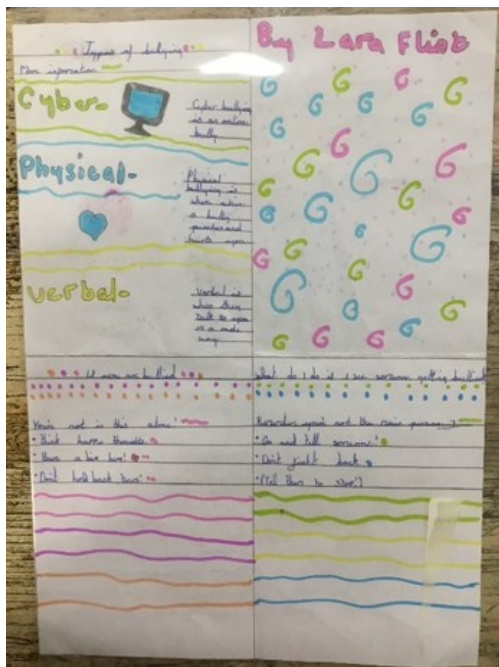 Types of bullying
More information
Cyber-
Cyber bullying
is an online
bully
Physical-
Physical
bullying is
when
a bully
punches and
hurts
verbal-
Verbal is
when they
talk to you
in a rude
way
By Lara Flint
If you are bullied
You're not in this alone!
Think happy thoughts
Have a big hug!
Don't hold back
What do I do if I see someone getting bullied
Remember you're not the main person
Go and tell someone!
Don't fight back
(Tell them to stop!)